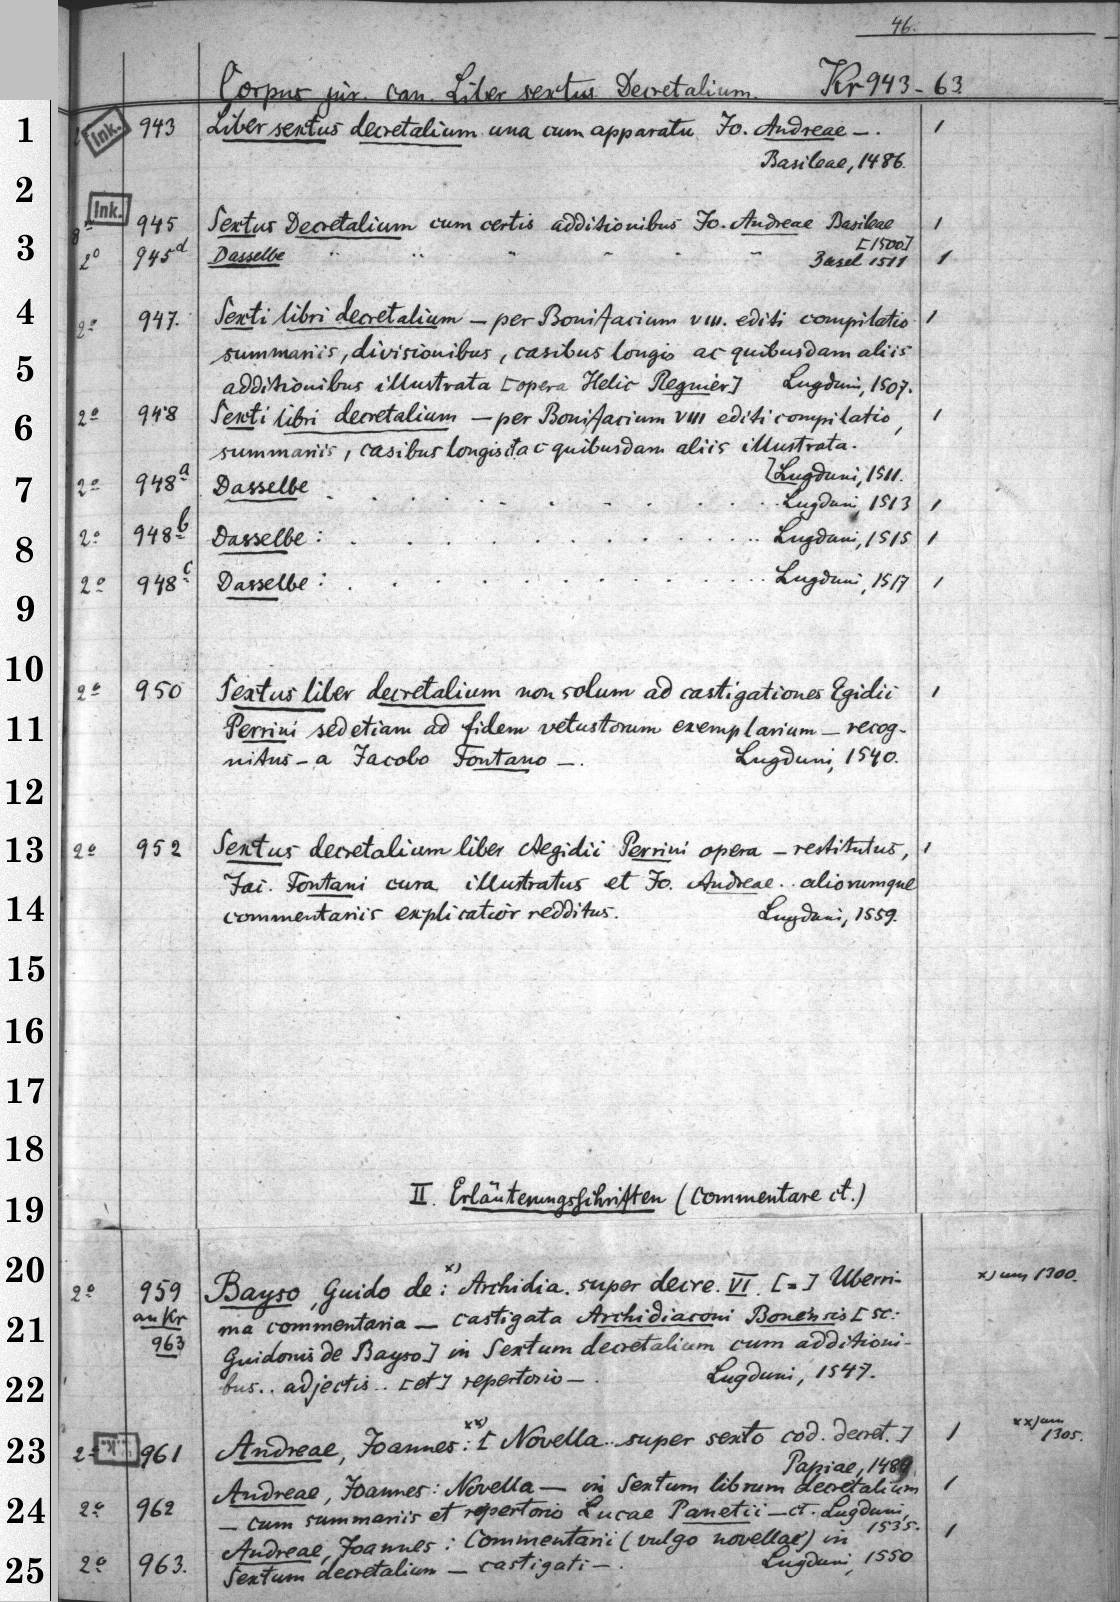 46.
Corpus jur. can. Liber sextus Decretalium. Kr 943-63
1 Ink. 943 Liber sextus decretalium una cum apparatu Jo. Andreae — . 1
Basileae, 1486.
2
Ink. 8° 945 Sextus Decretalium cum certis additionibus Jo. Andreae Basileae 1
[1500]
3 2° 945d Dasselbe " " " " " " Basel 1511 1
4 2° 947. Sexti libri decretalium — per Bonifacium VIII. editi compilatio 1
5 summariis, divisionibus, casibus longis ac quibusdam aliis
additionibus illustrata [opera Helie Regnier] Lugduni, 1507.
6 2° 948 Sexti libri decretalium — per Bonifacium VIII editi compilatio, 1
summariis, casibus longis ac quibusdam aliis illustrata.
[Lugduni, 1511.
7 2° 948a Dasselbe . . . . . . . . . . Lugduni, 1513 1
8 2° 948b Dasselbe : . . . . . . . . . . . Lugduni, 1515 1
2° 948c Dasselbe : . . . . . . . . . . . Lugduni, 1517 1
9
10 2° 950 Sextus liber decretalium non solum ad castigationes Egidii 1
11 Perrini sed etiam ad fidem vetustorum exemplarium — recog-
nitus — a Jacobo Fontano — . Lugduni, 1540.
12
13 2° 952 Sextus decretalium liber Aegidii Perrini opera — restitutus, 1
14 Jac. Fontani cura illustratus et Jo. Andreae . . aliorumque
commentariis explicatior redditus. Lugduni, 1559.
15
16
17
18
19 II. Erläuterungsschriften (Commentare ct.)
20 2° 959 Bayso, Guido de : x) Archidia. super decre. VI. [=] Uberri- x) um 1300.
21 an Kr 963 ma commentaria — castigata Archidiaconi Bonensis [sc.
Guidonis de Bayso] in Sextum decretalium cum additioni-
22 bus . . adjectis . . [et] repertorio — . Lugduni, 1547.
23 2° Ink. 961 Andreae, Joannes : xx) [Novella . . super sexto cod. decret.] 1 xx) um 1305.
Papiae, 1489.
24 2° 962 Andreae, Joannes : Novella — in Sextum librum decretalium 1
— cum summariis et repertorio Lucae Panetii — ct. Lugduni, 1535.
25 2° 963. Andreae, Joannes : Commentarii (vulgo novellae) in 1
Sextum decretalium — castigati — . Lugduni, 1550